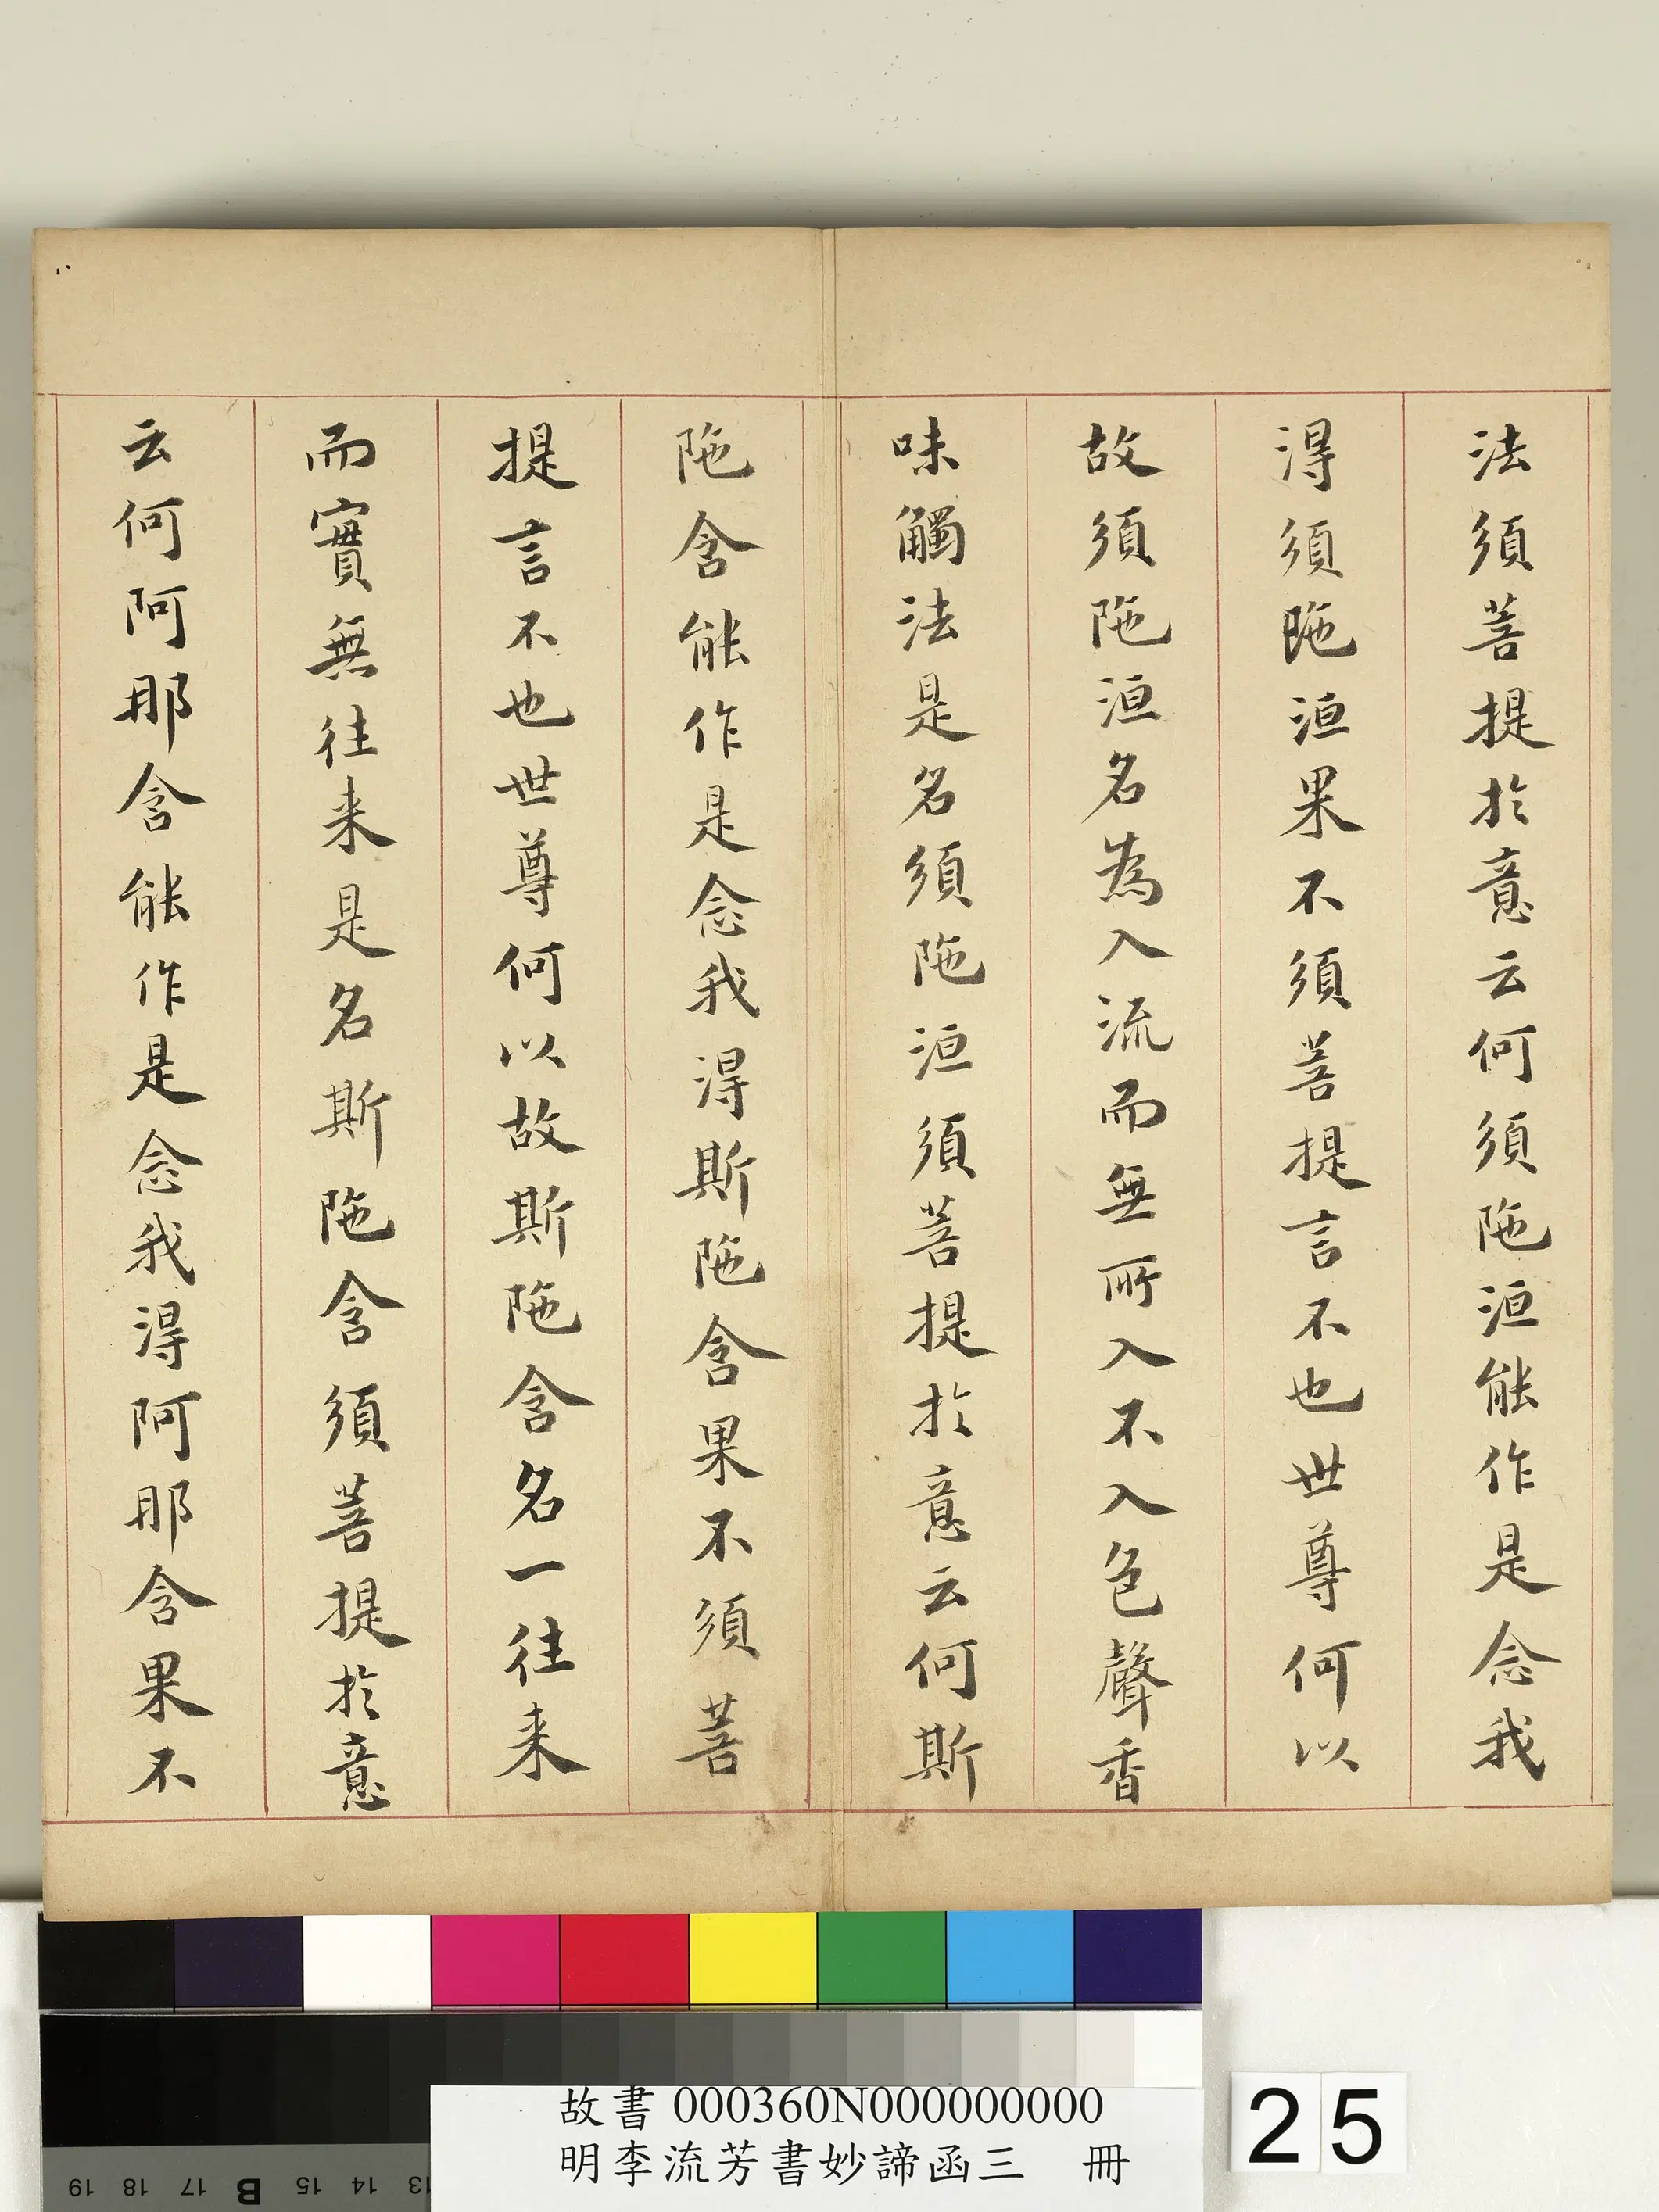 法須菩提於意云何須陁洹能作是念我
得須陁洹果不須菩提言不也世尊何以
故須陁洹名為入流而無所入不入色聲香
味觸法是名須陁洹須菩提於意云何斯
陁含能作是念我得斯陁含果不須菩
提言不也世尊何以故斯陁含名一往来
而實無往来是名斯陁含須菩提於意
云何阿那含能作是念我得阿那含果不
故書 000360N000000000
明李流芳書妙諦函三 冊
25
19 18 17 B 15 14 13